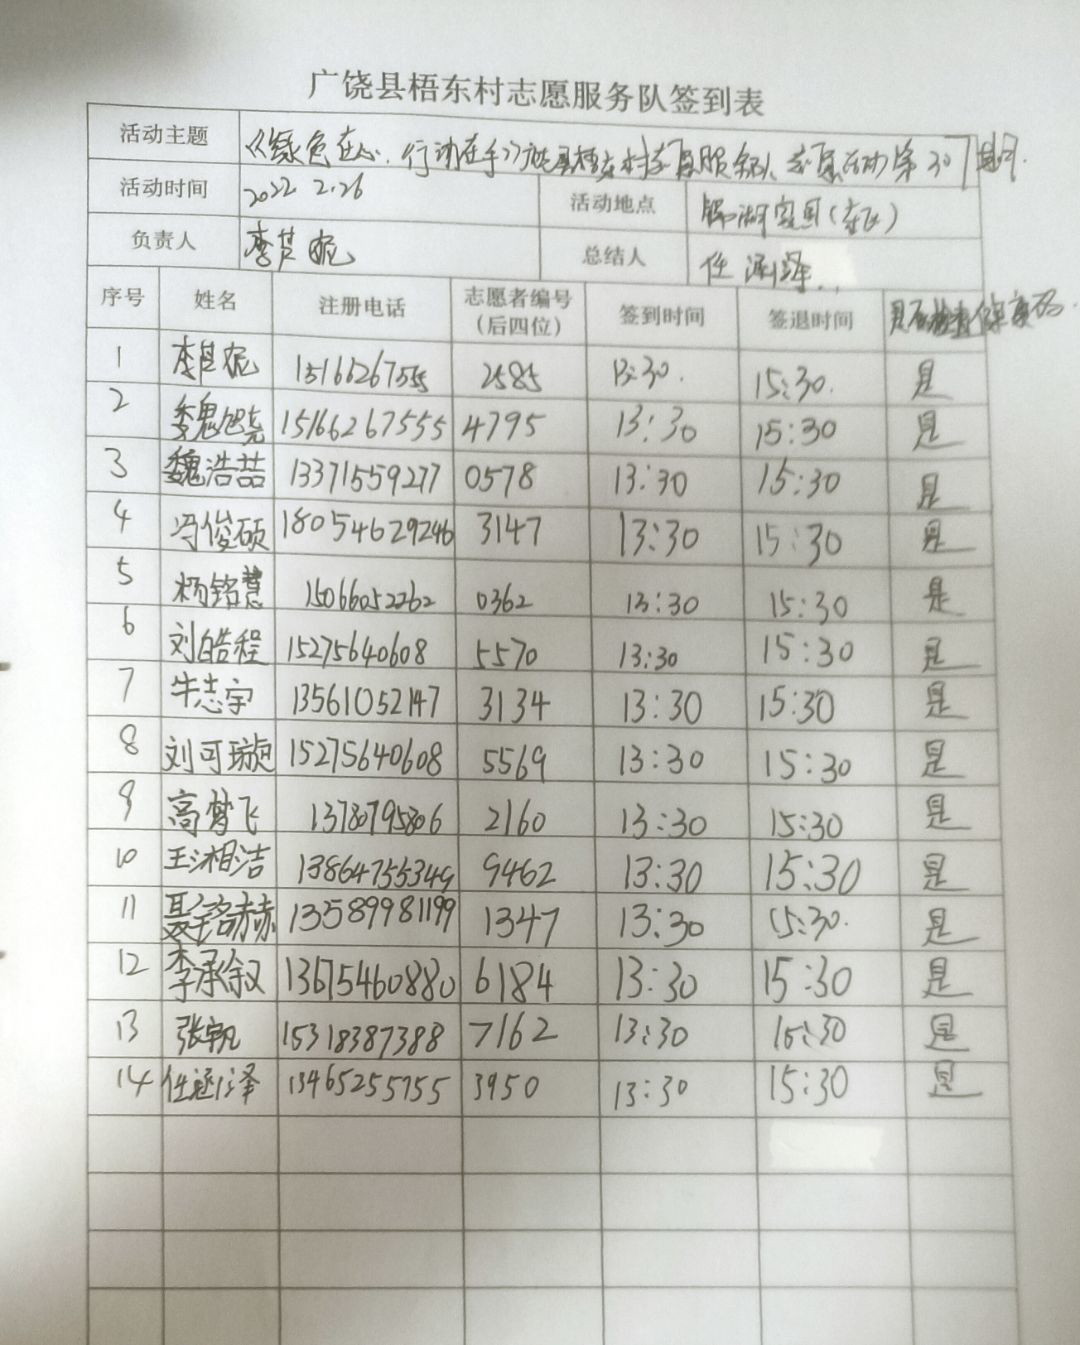 广饶县梧东村志愿服务队签到表
活动主题 《绿色在心,行动在手》广饶县梧东村志愿服务队志愿活动第307期
活动时间 2022 2.26 活动地点
负责人 李昔妮 总结人 任涵泽
序号 姓名 注册电话 志愿者编号(后四位) 签到时间 签退时间 是否检查健康码
1 李昔妮 2585 13:30. 15:30. 是
2 魏旭尧 15166267555 4795 13:30 15:30 是
3 魏浩喆 13371559277 0578 13:30 15:30 是
4 冯俊硕 18054629246 3147 13:30 15:30 是
5 杨铭慧 15066052262 0362 13:30 15:30 是
6 刘皓程 15275640608 5570 13:30 15:30 是
7 牛志宇 13561052147 3134 13:30 15:30 是
8 刘可璇 15275640608 5569 13:30 15:30 是
9 高梦飞 13780795806 2160 13:30 15:30 是
10 王湘洁 13864755349 9462 13:30 15:30 是
11 聂铭赫 13589981199 1347 13:30 15:30. 是
12 李承叙 13675460880 6184 13:30 15:30 是
13 张帆 15318387388 7162 13:30 15:30 是
14 任涵泽 13465255755 3950 13:30 15:30 是